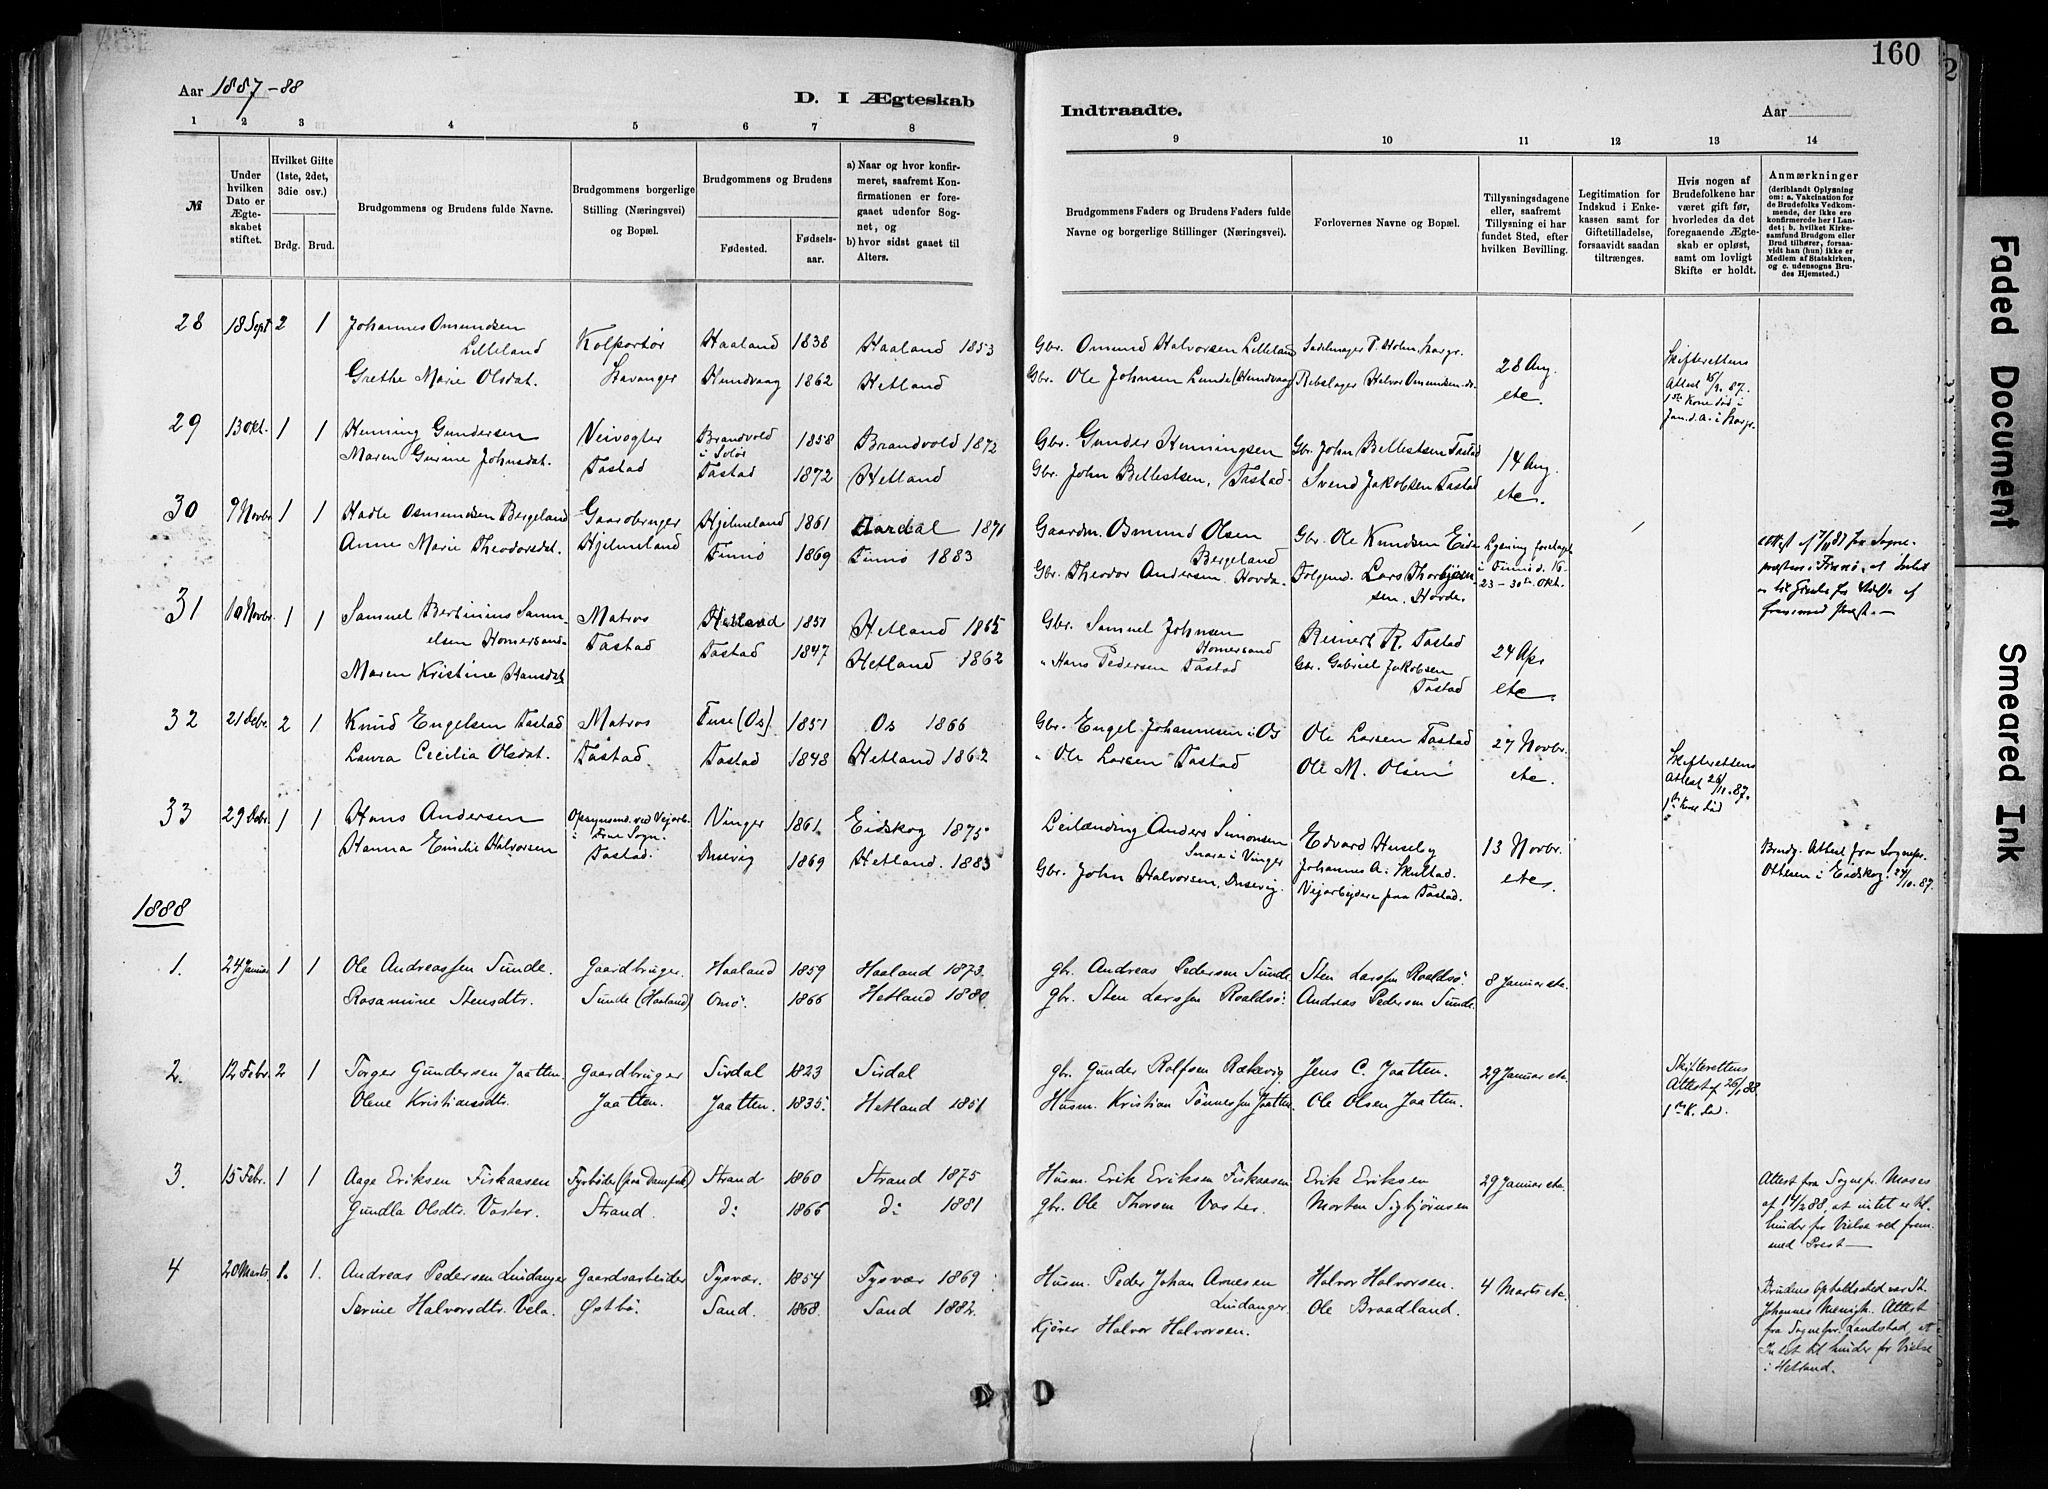 160
Aar 1887-88
D. I Ægteskab
Indtraadte.
Aar
1 2 3 4 5 6 7 8 9 10 11 12 13 14
№
Under hvilken Dato er Ægteskabet stiftet.
Hvilket Gifte (1ste, 2det, 3die osv.)
Brdg. Brud.
Brudgommens og Brudens fulde Navne.
Brudgommens borgerlige Stilling (Næringsvei) og Bopæl.
Brudgommens og Brudens
Fødested.
Fødselsaar.
a) Naar og hvor konfirmeret, saafremt Konfirmationen er foregaaet udenfor Sognet, og
b) hvor sidst gaaet til Alters.
Brudgommens Faders og Brudens Faders fulde Navne og borgerlige Stillinger (Næringsvei).
Forlovernes Navne og Bopæl.
Tillysningsdagene eller, saafremt Tillysning ei har fundet Sted, efter hvilken Bevilling.
Legitimation for Indskud i Enkekassen samt for Giftetilladelse, forsaavidt saadan tiltrænges.
Hvis nogen af Brudefolkene har været gift før, hvorledes da det foregaaende Ægteskab er opløst, samt om lovligt Skifte er holdt.
Anmærkninger
(deriblandt Oplysning om: a. Vakcination for de Brudefolks Vedkommende, der ikke ere konfirmerede her i Landet; b. hvilket Kirkesamfund Brudgom eller Brud tilhører, forsaavidt han (hun) ikke er Medlem af Statskirken, og c. udensogns Brudes Hjemsted.)
28 18 Sept 2 1 Johannes Omundsen Kolportør Haaland 1838 Haaland 1853 Gbr. Omund Halvorsen Lilleland Sadelmager P. Holm, Stavgr. 28 Aug. Skifterettens
Lilleland
Grethe Marie Olsdat. Stavanger Hundvaag 1862 Hetland Gbr. Ole Johnsen Lunde (Hundvaag) Rebslager Halvor Omundsen do. etc. 1ste Kone død i
29 13 Okt. 1 1 Henning Gundersen Veivogter Brandvold i Solør 1858 Brandvold 1872 Gbr. Gunder Henningsen Gbr. John Bellestsen Tastad 14 Aug.
Maren Gurine Johnsdat. Tastad Tastad 1872 Hetland Gbr. John Bellestsen, Tastad Svend Jakobsen Tastad etc.
30 9 Novbr 1 1 Hadle Osmundsen Bergeland Gaardbruger Hjelmeland 1861 Aardal 1876 Gaardm. Osmund Olsen Bergeland Gbr. Ole Knudsen Eide Lysning foretaget
Anne Marie Theodorsdat. Hjelmeland Finnø 1869 Finnø 1883 Gbr. Theodor Andersen Hovda Folgemd. Lars Thorbjørnsen, Hovde. i Finnø d. 16-23-30te Okt.
31 10 Novbr. 1 1 Samuel Bertinius Samuelsen Homersand Matros Hetland 1851 Hetland 1865 Gbr. Samuel Johnsen Homersand Reinert R. Tastad 24 Apr
Maren Kristine Hansdat. Tastad Tastad 1847 Hetland 1862 " Hans Pedersen Tastad Gbr. Gabriel Jakobsen Tastad etc
32 21 Debr. 2 1 Knud Engelsen Tastad Matros Tuse (Os) 1851 Os 1866 Gbr. Engel Johannesen i Os Ole Larsen Tastad 27 Novbr. Skifterettens
Laura Cecilia Olsdat. Tastad. Tastad 1848 Hetland 1862 " Ole Larsen Tastad Ole M. Olsen etc. Attest 26/11.87. 1ste Kone død
33 29 Debr. 1 1 Hans Andersen Opsynsmd. ved Veiarb. i Frue Sogn. Vinger 1861 Eidskog 1875 Leilænding Anders Simonsen Snare i Vinger Edvard Huseby 13 Novbr. Brudg. Attest fra Sognepr.
Hanna Emilie Halvorsen Tastad. Dusevig 1869 Hetland. 1883 Gbr. John Halvorsen, Dusevig. Johannes A. Skulstad. Vejarbejdere paa Tastad. etc. Ottesen i Eidskog 24/10.87.
1888
1. 24 Januar 1 1 Ole Andreassen Sunde. Gaardbruger. Haaland 1859 Haaland 1873. gbr. Andreas Pedersen Sunde. Sten Larssen Roaldsø. 8 Januar etc.
Rosamine Stensdtr. Sunde (Haaland) Omø. 1866 Hetland 1880. gbr. Sten Larssen Roaldsø. Andreas Pedersen Sunde.
2. 12 Febr. 2 1 Torger Gundersen Jaatten Gaardbruger Sirdal 1823 Sirdal gbr. Gunder Rolfsen Rækevig. Jens C. Jaatten. 29 Januar etc. Skifterettens
Olene Kristiansdtr. Jaatten. Jaatten. 1835. Hetland 1851 Husm. Kristian Tønnessen Jaatten. Ole Olsen Jaatten. Attest af 26/1 88 1ste K. død.
3. 15 Febr. 1 1 Aage Eriksen Fiskaasen Fyrbøder (paa Dampsk.) Strand 1860 Strand 1875 Husm. Erik Eriksen Fiskaasen Erik Eriksen 29 Januar etc. Attest fra Sognepr. Moses
Gundla Olsdtr. Voster. Strand. do 1866 do 1881 gbr. Ole Thorsen Voster. Morten Sigbjørnsen af 14/2 88, at intet er til Hinder for Vielse ved fremmed Prest
4 20 Marts 1. 1. Andreas Pedersen Lindanger Gaardsarbeider Tysvær. 1854 Tysvær 1869 Husm. Peder Johan Arnesen Lindanger. Halvor Halvorsen. 4 Marts etc. Brudens Opholdssted var St.
Serine Halvorsdtr. Vela Østbø. Sand. 1868. Sand 1882. Kjører Halvor Halvorsen. Ole Braadland. Johannes Menigh. Attest fra Sognepr. Landstad, at Intet til Hinder for Vielse i Hetland.
Faded Document
Smeared Ink